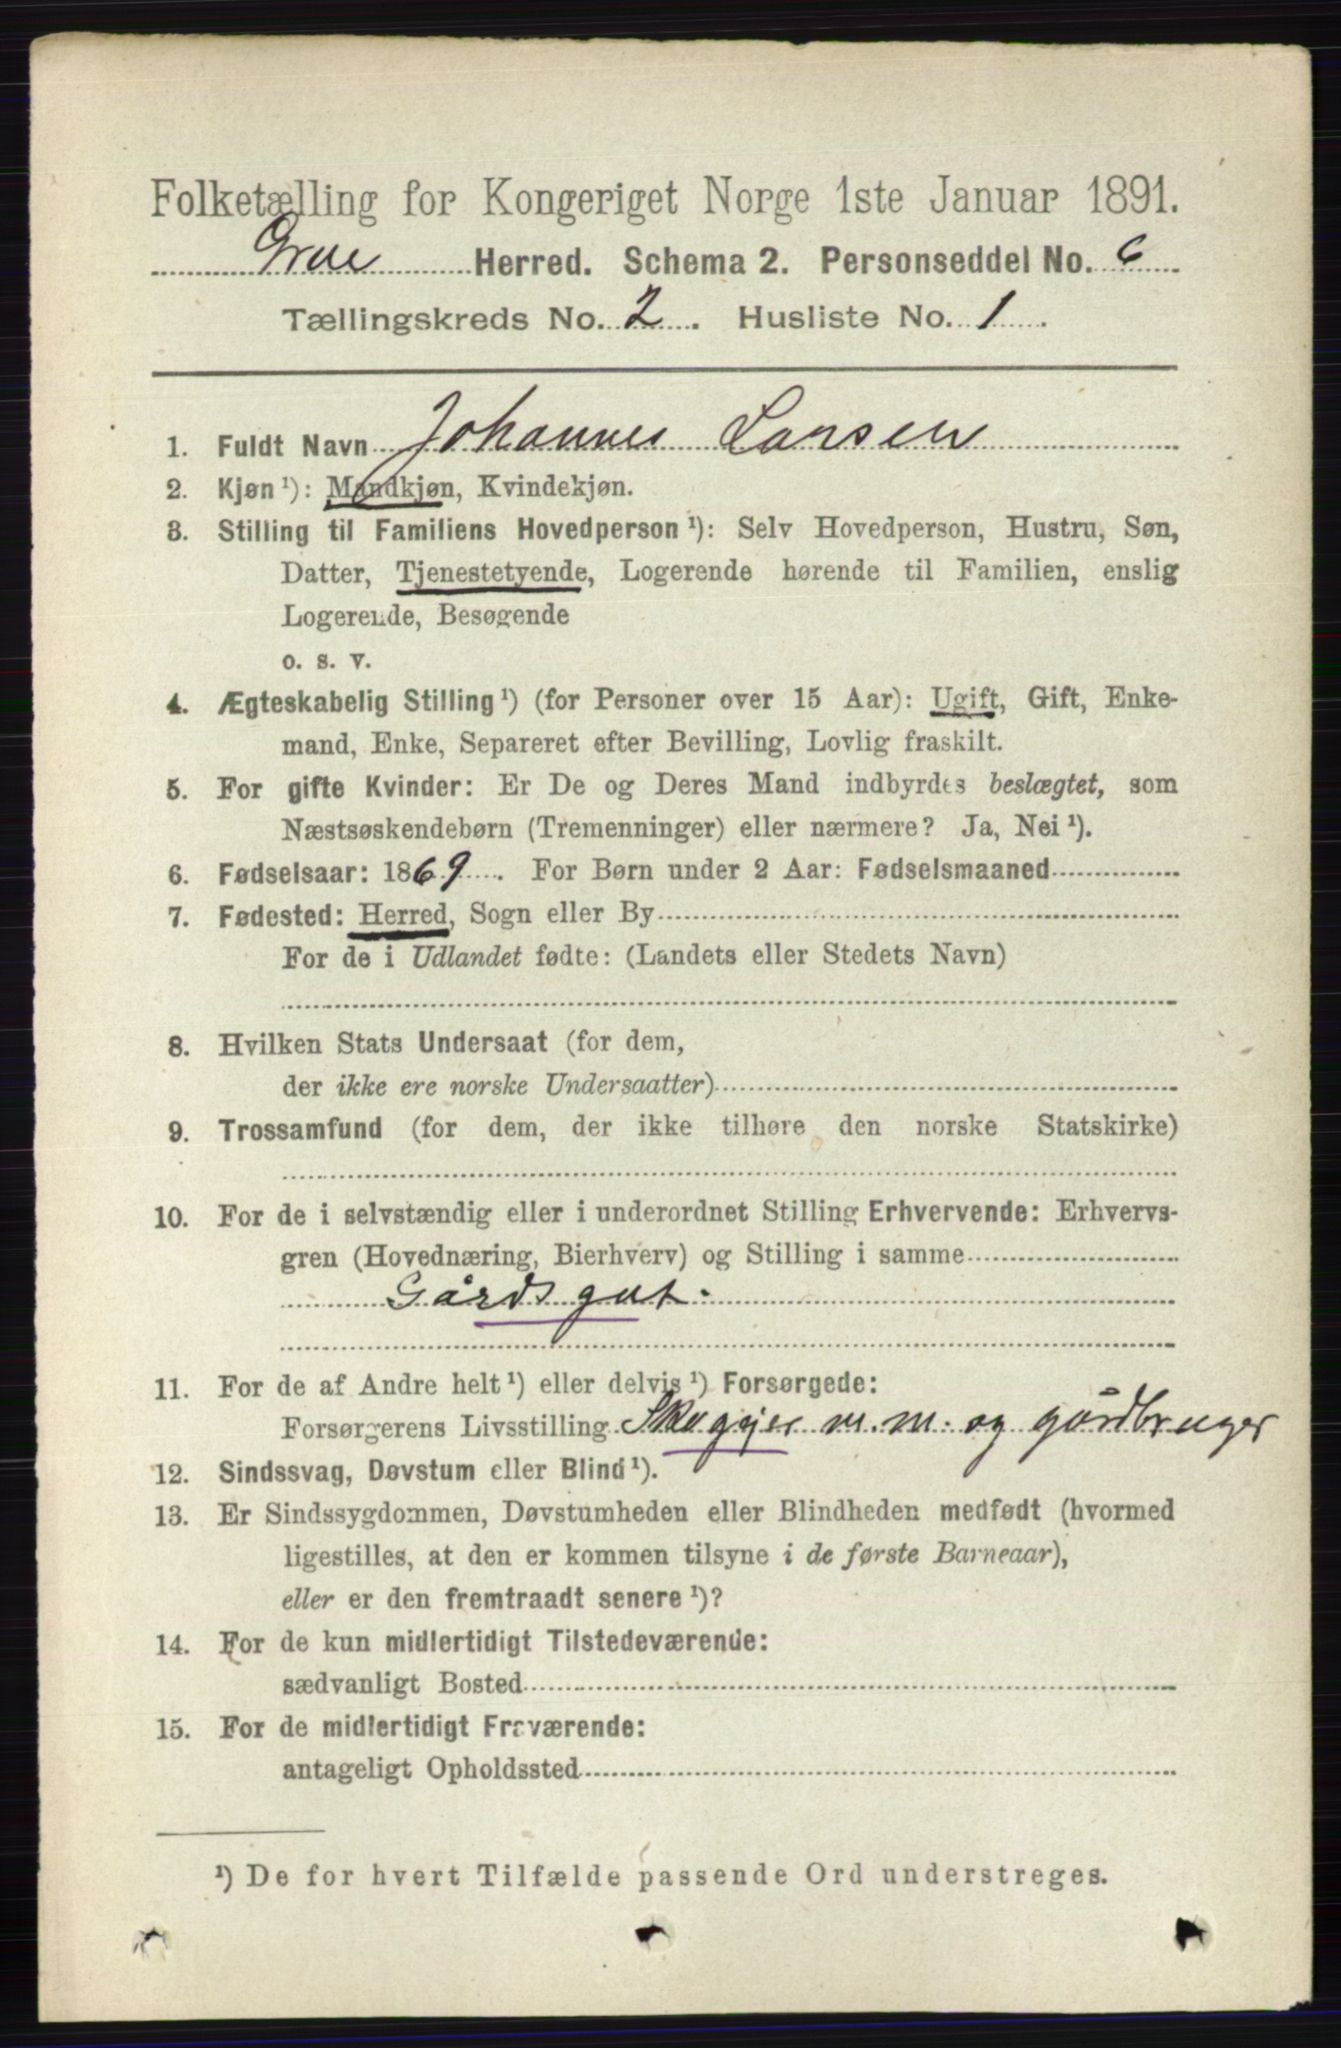 Folketælling for Kongeriget Norge 1ste Januar 1891.
Grue Herred. Schema 2. Personseddel No. 6
Tællingskreds No. 2. Husliste No. 1.
1. Fuldt Navn Johannes Larsen
2. Kjøn ¹): Mandkjøn, Kvindekjøn.
3. Stilling til Familiens Hovedperson ¹): Selv Hovedperson, Hustru, Søn,
Datter, Tjenestetyende, Logerende hørende til Familien, enslig
Logerende, Besøgende
o. s. v.
4. Ægteskabelig Stilling ¹) (for Personer over 15 Aar): Ugift, Gift, Enke-
mand, Enke, Separeret efter Bevilling, Lovlig fraskilt.
5. For gifte Kvinder: Er De og Deres Mand indbyrdes beslægtet, som
Næstsøskendebørn (Tremenninger) eller nærmere? Ja, Nei ¹).
6. Fødselsaar: 1869. For Børn under 2 Aar: Fødselsmaaned
7. Fødested: Herred, Sogn eller By
For de i Udlandet fødte: (Landets eller Stedets Navn)
8. Hvilken Stats Undersaat (for dem,
der ikke ere norske Undersaatter)
9. Trossamfund (for dem, der ikke tilhøre den norske Statskirke)
10. For de i selvstændig eller i underordnet Stilling Erhvervende: Erhvervs-
gren (Hovednæring, Bierhverv) og Stilling i samme
Gårdsgut.
11. For de af Andre helt ¹) eller delvis ¹) Forsørgede:
Forsørgerens Livsstilling Skogejer m.m. og gårdbruger
12. Sindssvag, Døvstum eller Blind ¹).
13. Er Sindssygdommen, Døvstumheden eller Blindheden medfødt (hvormed
ligestilles, at den er kommen tilsyne i de første Barneaar),
eller er den fremtraadt senere ¹)?
14. For de kun midlertidigt Tilstedeværende:
sædvanligt Bosted
15. For de midlertidigt Fraværende:
antageligt Opholdssted
¹) De for hvert Tilfælde passende Ord understreges.